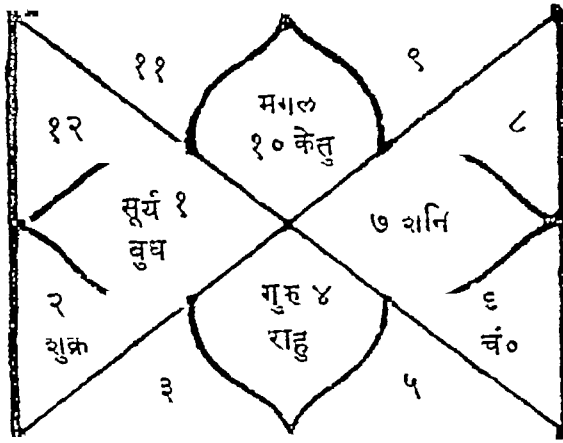 ११
९
मगल
१० केतु
१२
८
सूर्य १
वुध
७ शनि
२
शुक्र
गुरु ४
राहु
६
चं०
३
५